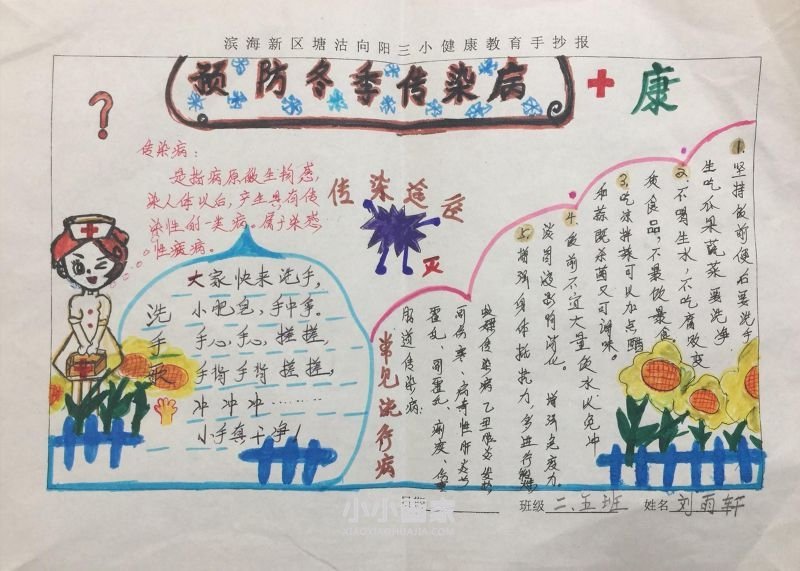 滨海新区塘沽向阳三小健康教育手抄报
预防冬季传染病
康
传染病:
是指病原微生物感
染人体以后,产生具有传
染性的一类病。属于感染
性疾病。
传染途径
灭
洗手歌
大家快来洗手,
小肥皂,手中拿。
手心,手心,搓搓,
手背手背搓搓,
冲冲冲………
小手真干净!
常见流行病
肠道传染病:
霍乱、副霍乱、痢疾、伤
1.坚持饭前便后要洗手
生吃瓜果蔬菜要洗净
2.不喝生水,不吃腐败变
质食品,不暴饮暴食。
3.吃凉拌菜可以加点醋
和蒜既杀菌又可调味。
4.饭前不宜大量饮水以免冲
淡胃液影响消化。
5.增强身体抵抗力,多进行锻炼
增强免疫力。
日期
班级 二、五班
姓名 刘雨轩
小小画家
XIAOXIAOHUAJIA.COM